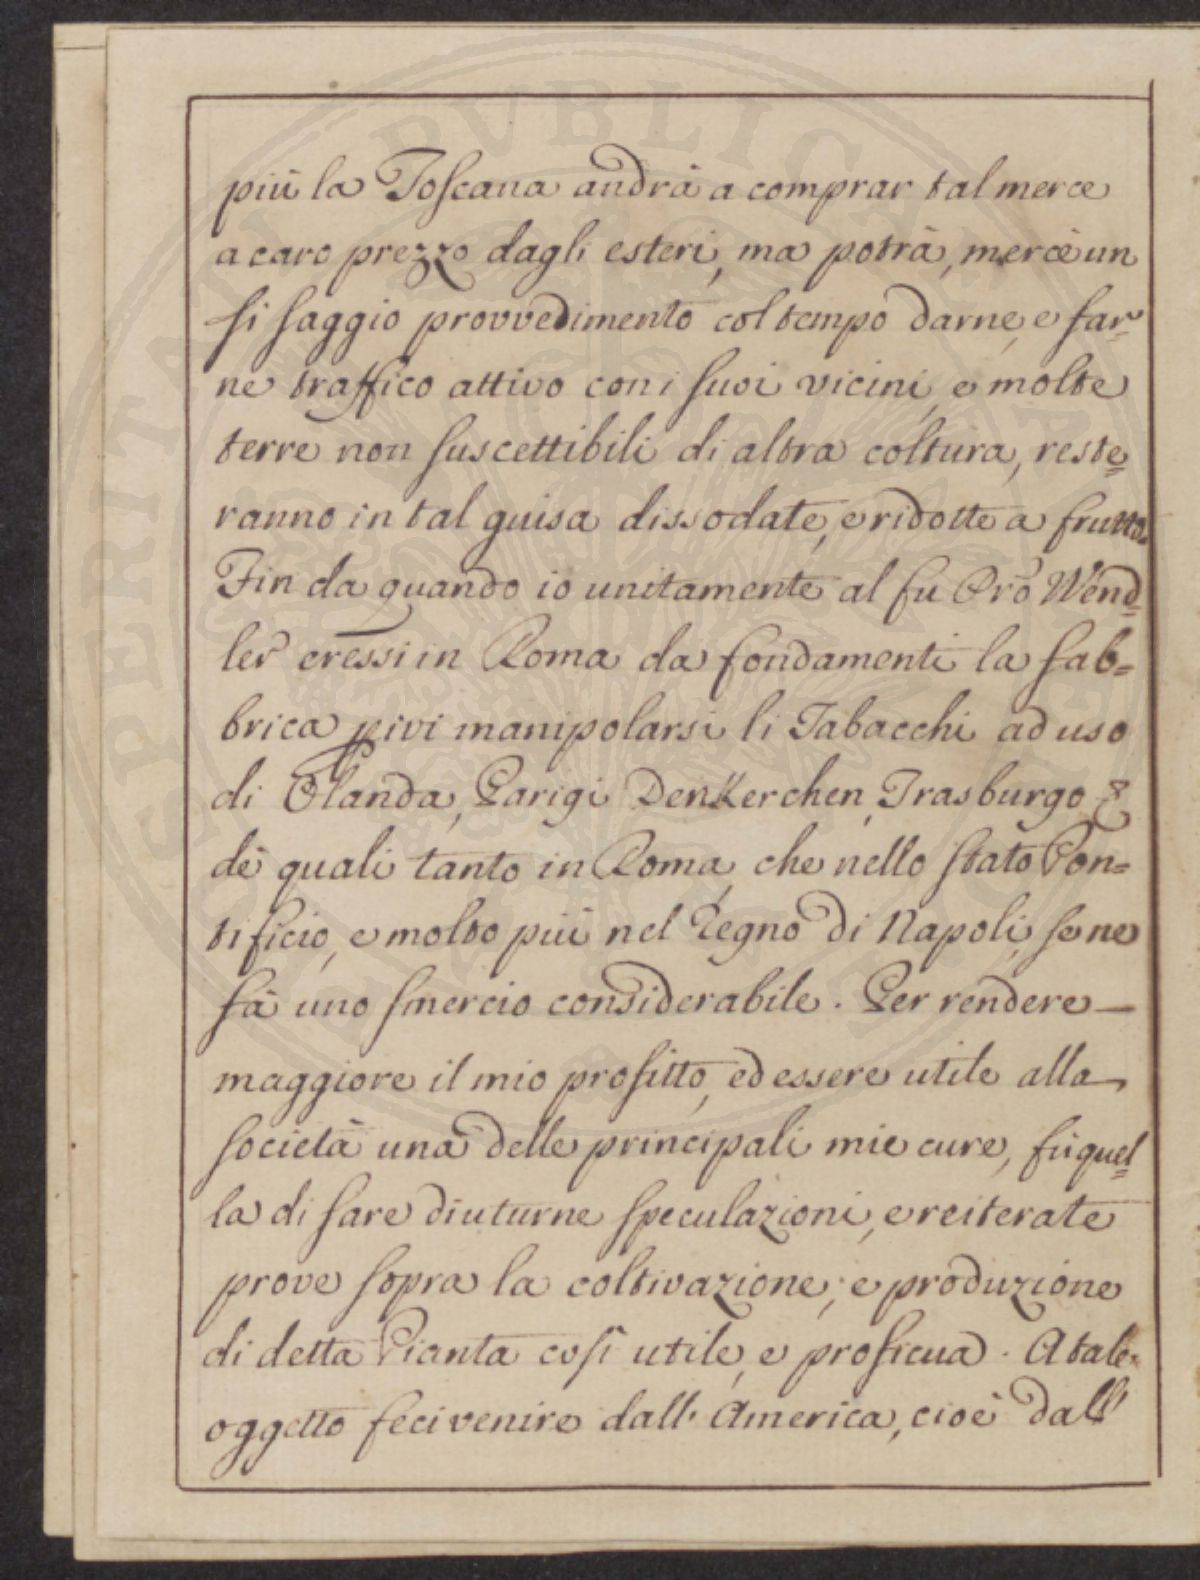 più la Toscana andrà a comprar tal merce
a caro prezzo dagli esteri, ma potrà, mercè un
si saggio provvedimento col tempo darne, e far=
ne traffico attivo con i suoi vicini, e molte
terre non suscettibili di altra coltura, reste=
ranno in tal guisa dissodate, e ridotte a frutto.
Fin da quando io unitamente al fu Prõ Wend=
ler eressi in Roma da fondamenti la fab=
brica p ivi manipolarsi li Tabacchi ad uso
di Olanda, Parigi Denkerchen, Trasburgo &
dè quali tanto in Roma, che nello stato Pon=
tificio, e molto più nel Regno di Napoli, se ne
fà uno smercio considerabile. Per rendere —
maggiore il mio profitto, ed essere utile alla
società una delle principali mie cure, fù quel=
la di fare diuturne speculazioni, e reiterate
prove sopra la coltivazione, e produzione
di detta Pianta così utile, e proficua. A tale
oggetto feci venire dall' America, cioè dall'
PERITATI PVBLICAE